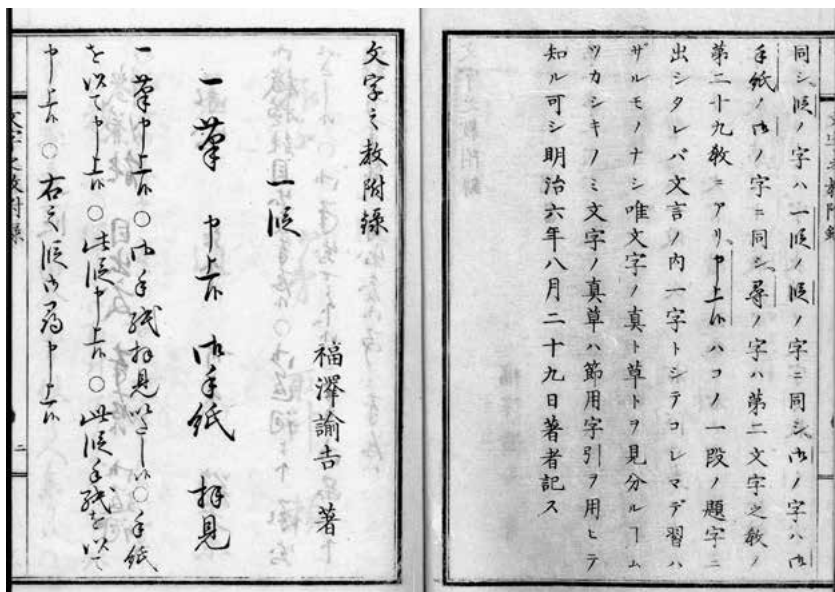 同シ段ノ字ハ一段ノ段ノ字ニ同シ御ノ字ハ御
手紙ノ御ノ字ニ同シ尋ノ字ハ第二文字之教ノ
第二十九教ニアリ申上候ハコノ一段ノ題字ニ
出シタレバ文言ノ内一字トシテコレマデ習ハ
ザルモノナシ唯文字ノ真ト草トヲ見分ルヿム
ツカシキノミ文字ノ真草ハ節用字引ヲ用ヒテ
知ル可シ明治六年八月二十九日著者記ス
文字之教附録
福澤諭吉 著
一段
一筆 申上候 御手紙 拝見
一筆申上候○御手紙拝見いたし候○手紙
を以て申上候○此段申上候○此段手紙を以て
申上候○右之段御尋申上候
文字之教附録
二